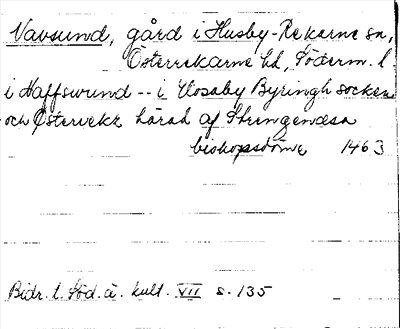 Navsund, gård i Husby-Rekarne sn,
Österrekarne hd, Söderm. l.
i Naffswund -- i Hosaby Byringh socken
och Østerrekz härad af Strengenæsa
biskopsdöme 1463
Bidr. t. Söd. ä. kult. VII s. 135